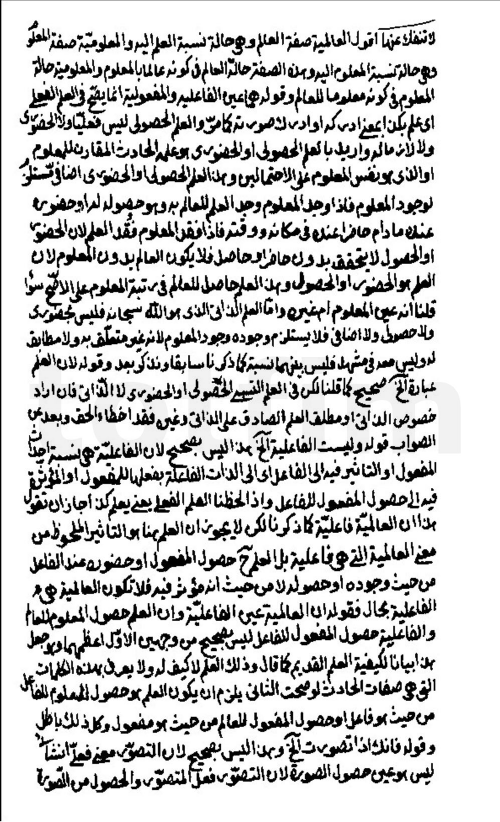 لا تنفك عنها اقول العالمية صفة العالم وهي حالة نسبة العلم اليه والمعلوميّة صفة المعلوم
وهي حالة نسبة المعلوم اليه وهذه الصفة حالة العالم في كونه عالما بالمعلوم والمعلومية حالة
المعلوم في كونه معلوما للعالم وقوله هما عين الفاعليه والمفعولية انما يصحّ في العلم الفعلي
اي علم يكن بمعنى ادركه او ادرك صورته كما مرّ والعلم الحصولي ليس فعليّا ولا الحضوري
ولا لازماله واريد بالعلم الحصولي او الحضوري هو علمه الحادث المقارن للمعلوم
او الذي هو نفس المعلوم على الاحتمالين وهذا العلم الحصولي او الحضوري اضافي مستلزم
لوجود المعلوم فاذا وجد المعلوم وجد العلم للعالم به وهو حصوله له او حضوره
عنده ما دام حاضرا عنده في مكانه ووقته فاذا فقد المعلوم فُقد العلم لان الحضور
او الحصول لا يتحقق بدون حاضر او حاصل فلا يكون العالم بدون المعلوم لان
العلم هو الحضور او الحصول وهذا العلم حاصل للعالم في رتبة المعلوم على الاصح سواء
قلنا انه عين المعلوم ام غيره وامّا العلم الذاتي الذي هو الله سبحانه فليس بحضوري
ولا حصولي ولا اضافي فلا يستلزم وجوده وجود المعلوم لانه غير متعلّق به ولا مطابق
له وليس معه في مشهد فليس بينهما نسبة كما ذكرنا سابقا ونذكر بعد وقوله لان العلم
عبارة الخ صحيح كما قلنا لكن في العلم النسبي الحصولي او الحضوري لا الذاتي فان اراد
خصوص الذاتي او مطلق العلم الصادق على الذاتي وغيره فقد اخطأ الحق وبعد عن
الصواب قوله وليست الفاعلية الخ هذا ليس بصحيح لان الفاعليّة هي نسبة احداث
المفعول او التاثير فيه الى الفاعل اي الى الذات الفاعلة بفعلها للمفعول او المؤثرة
فيه الى حصول المفعول للفاعل واذا لحظنا العلم الفعلي يعني يعلم كذا جاز ان تقول
هذا ان العالميّة فاعليّة كما ذكرنا لكن لا يجوز ان العلم هنا هو التاثير الملحوظ من
معنى العالمية التي هي فاعلية بل العلم ح حصول المفعول او حضوره عند الفاعل
من حيث وجوده او حصوله لا من حيث انه مؤثر فيه فلا تكون العالمية هي
الفاعلية بحال فقوله ان العالمية عين الفاعليّة وان العلم حصول المعلوم للعالم
والفاعلية حصول المفعول للفاعل ليس بصحيح من وجهين الاوّل اعظمهما وهو جعل
هذا بيانا لكيفية العلم القديم كما قال وذلك العلم لا كيف له ولا يعرف بهذه الكلمات
التي هي صفات الحادث لو صحت الثاني يلزم ان يكون العلم هو حصول المعلوم للفاعل
من حيث هو فاعل او حصول المفعول للعالم من حيث هو مفعول وكل ذلك باطل
وقوله فانك اذا تصورت الخ وهذا ليس بصحيح لان التصوّر معنى فعليّ انشأ
ليس هو عين حصول الصورة لان التصوّر فعل المتصوّر والحصول من الصورة